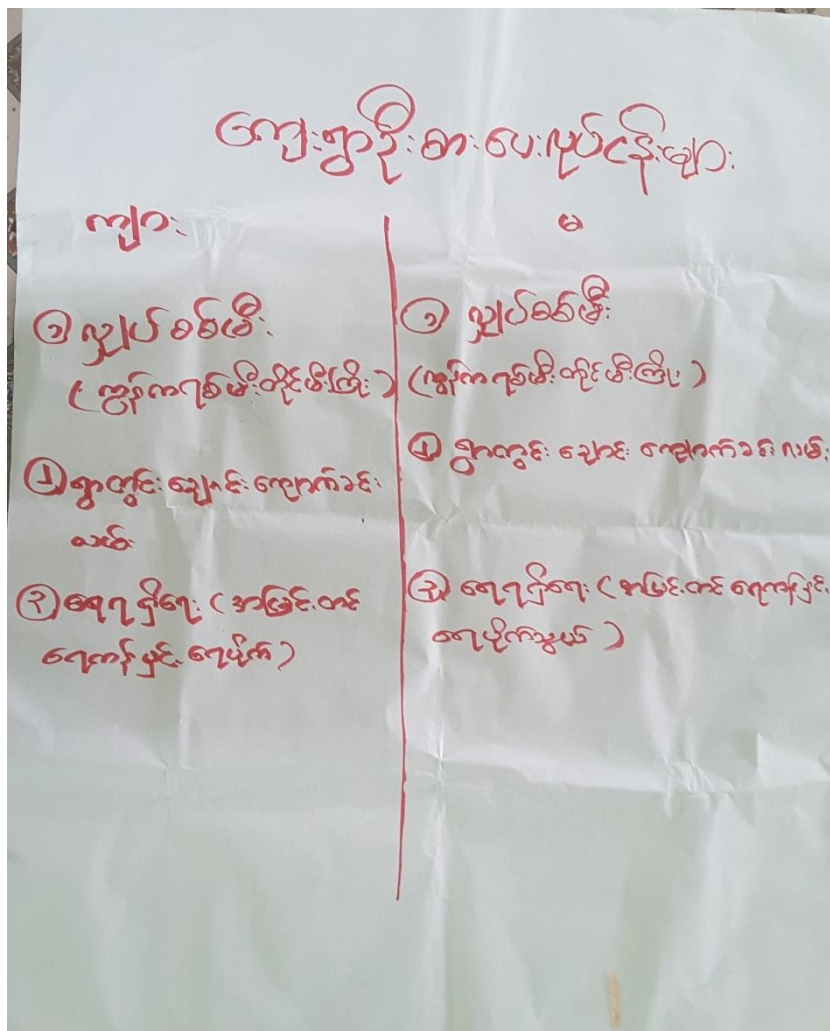 ကျေးရွာဦးစားပေးလုပ်ငန်းများ
ကျား
၁ လျှပ်စစ်မီး
(ကွန်ကရစ်မီးတိုင်မီးကြိုး)
၂ ရွာတွင်းချောင်းကျောက်ခင်း
လမ်း
၃ ရေရရှိရေး (အမြင့်တင်
ရေကန်နှင့် ရေပိုက်)
မ
၁ လျှပ်စစ်မီး
(ကွန်ကရစ်မီးတိုင်မီးကြိုး)
၂ ရွာတွင်းချောင်း ကျောက်ခင်းလမ်း
၃ ရေရရှိရေး (အမြင့်တင်ရေကန်နှင့်
ရေပိုက်သွယ်)